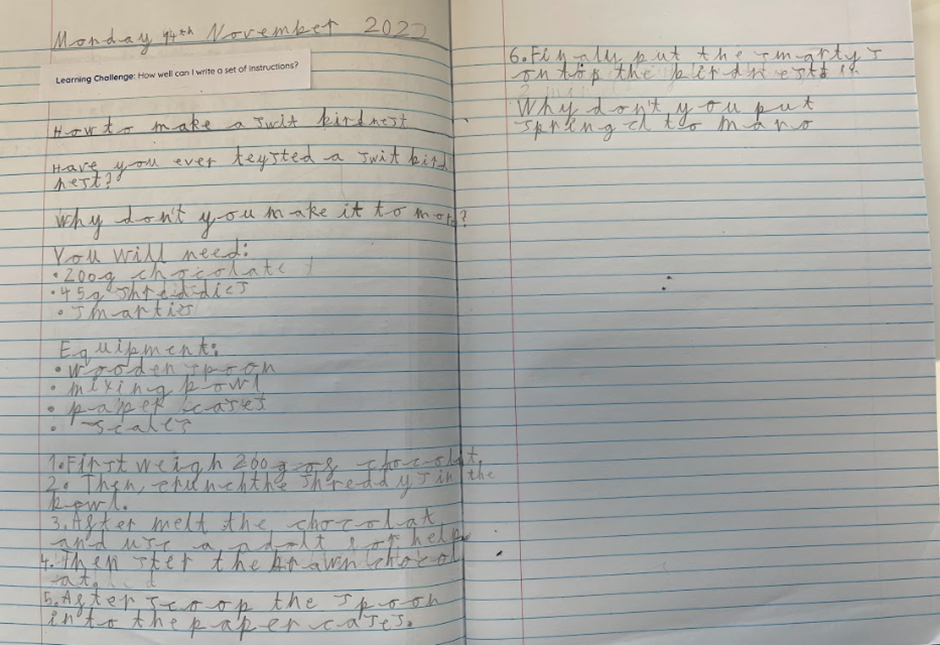 Monday 14th November 2022
Learning Challenge: How well can I write a set of instructions?
How to make a swit birdnest
Have you ever teysted a swit bird
nest?
Why don't you make it to mor?
You will need:
• 200g chocolate
• 45g shreddies
• smarties
Equipment:
• wooden spoon
• mixing bowl
• paper cases
• scales
1. First weigh 200g of chocolat
2. Then, crunch the shreddys in the
bowl.
3. After melt the chocolat
and use a adolt for help.
4. Then ster the brawn chocol
at.
5. After scoop the spoon
into the paper cases.
6. Finally put the smartys
on top the birdnests
Why don't you put